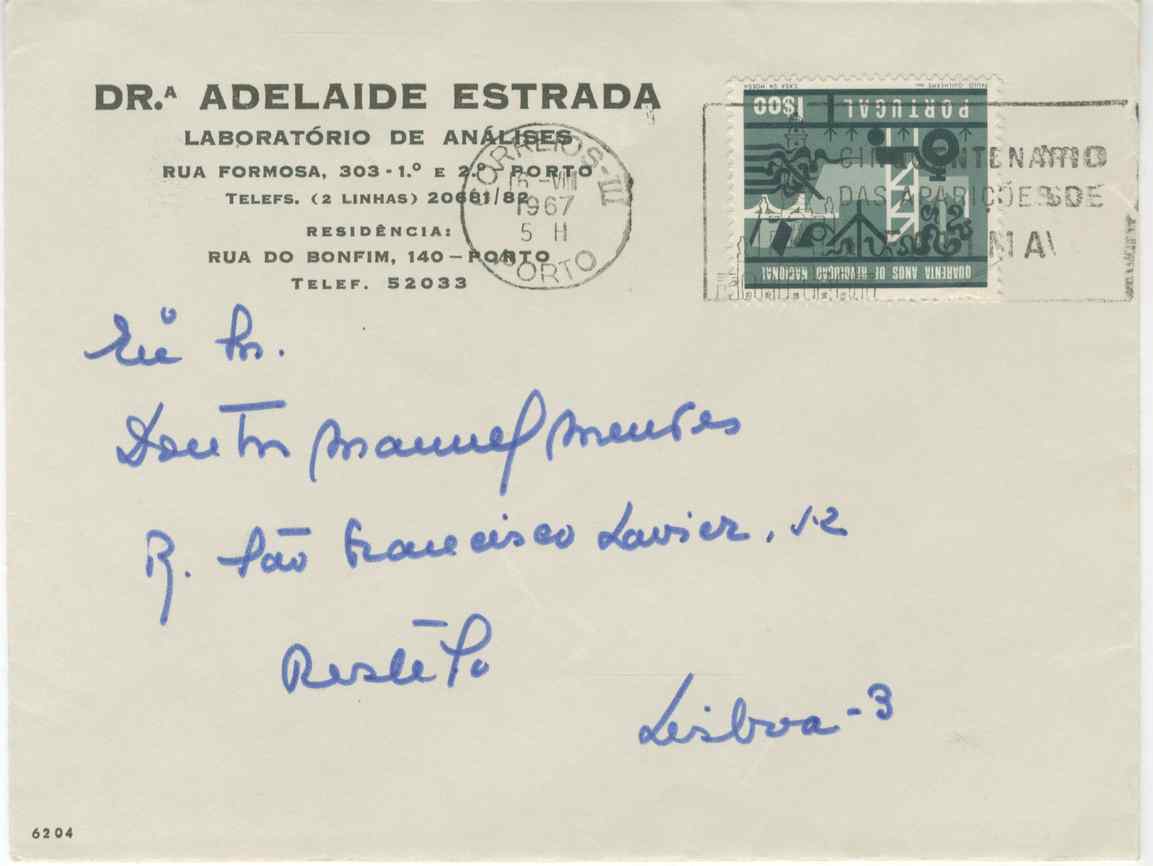 DR.ᴬ ADELAIDE ESTRADA
LABORATÓRIO DE ANÁLISES
RUA FORMOSA, 303 - 1.º E 2.º PORTO
TELEFS. (2 LINHAS) 20681/82
RESIDÊNCIA:
RUA DO BONFIM, 140 – PORTO
TELEF. 52033
CORREIOS-III
16 -VIII
1967
5 H
PORTO
1$00
PORTUGAL
CASA DA MOEDA
QUARENTA ANOS DE REVOLUÇÃO NACIONAL
CINQUENTENÁRIO
DAS APARIÇÕES DE
Sr.
Doutor Manuel Mendes
R. São Francisco Xavier, 12
Restêlo
Lisboa - 3
6204